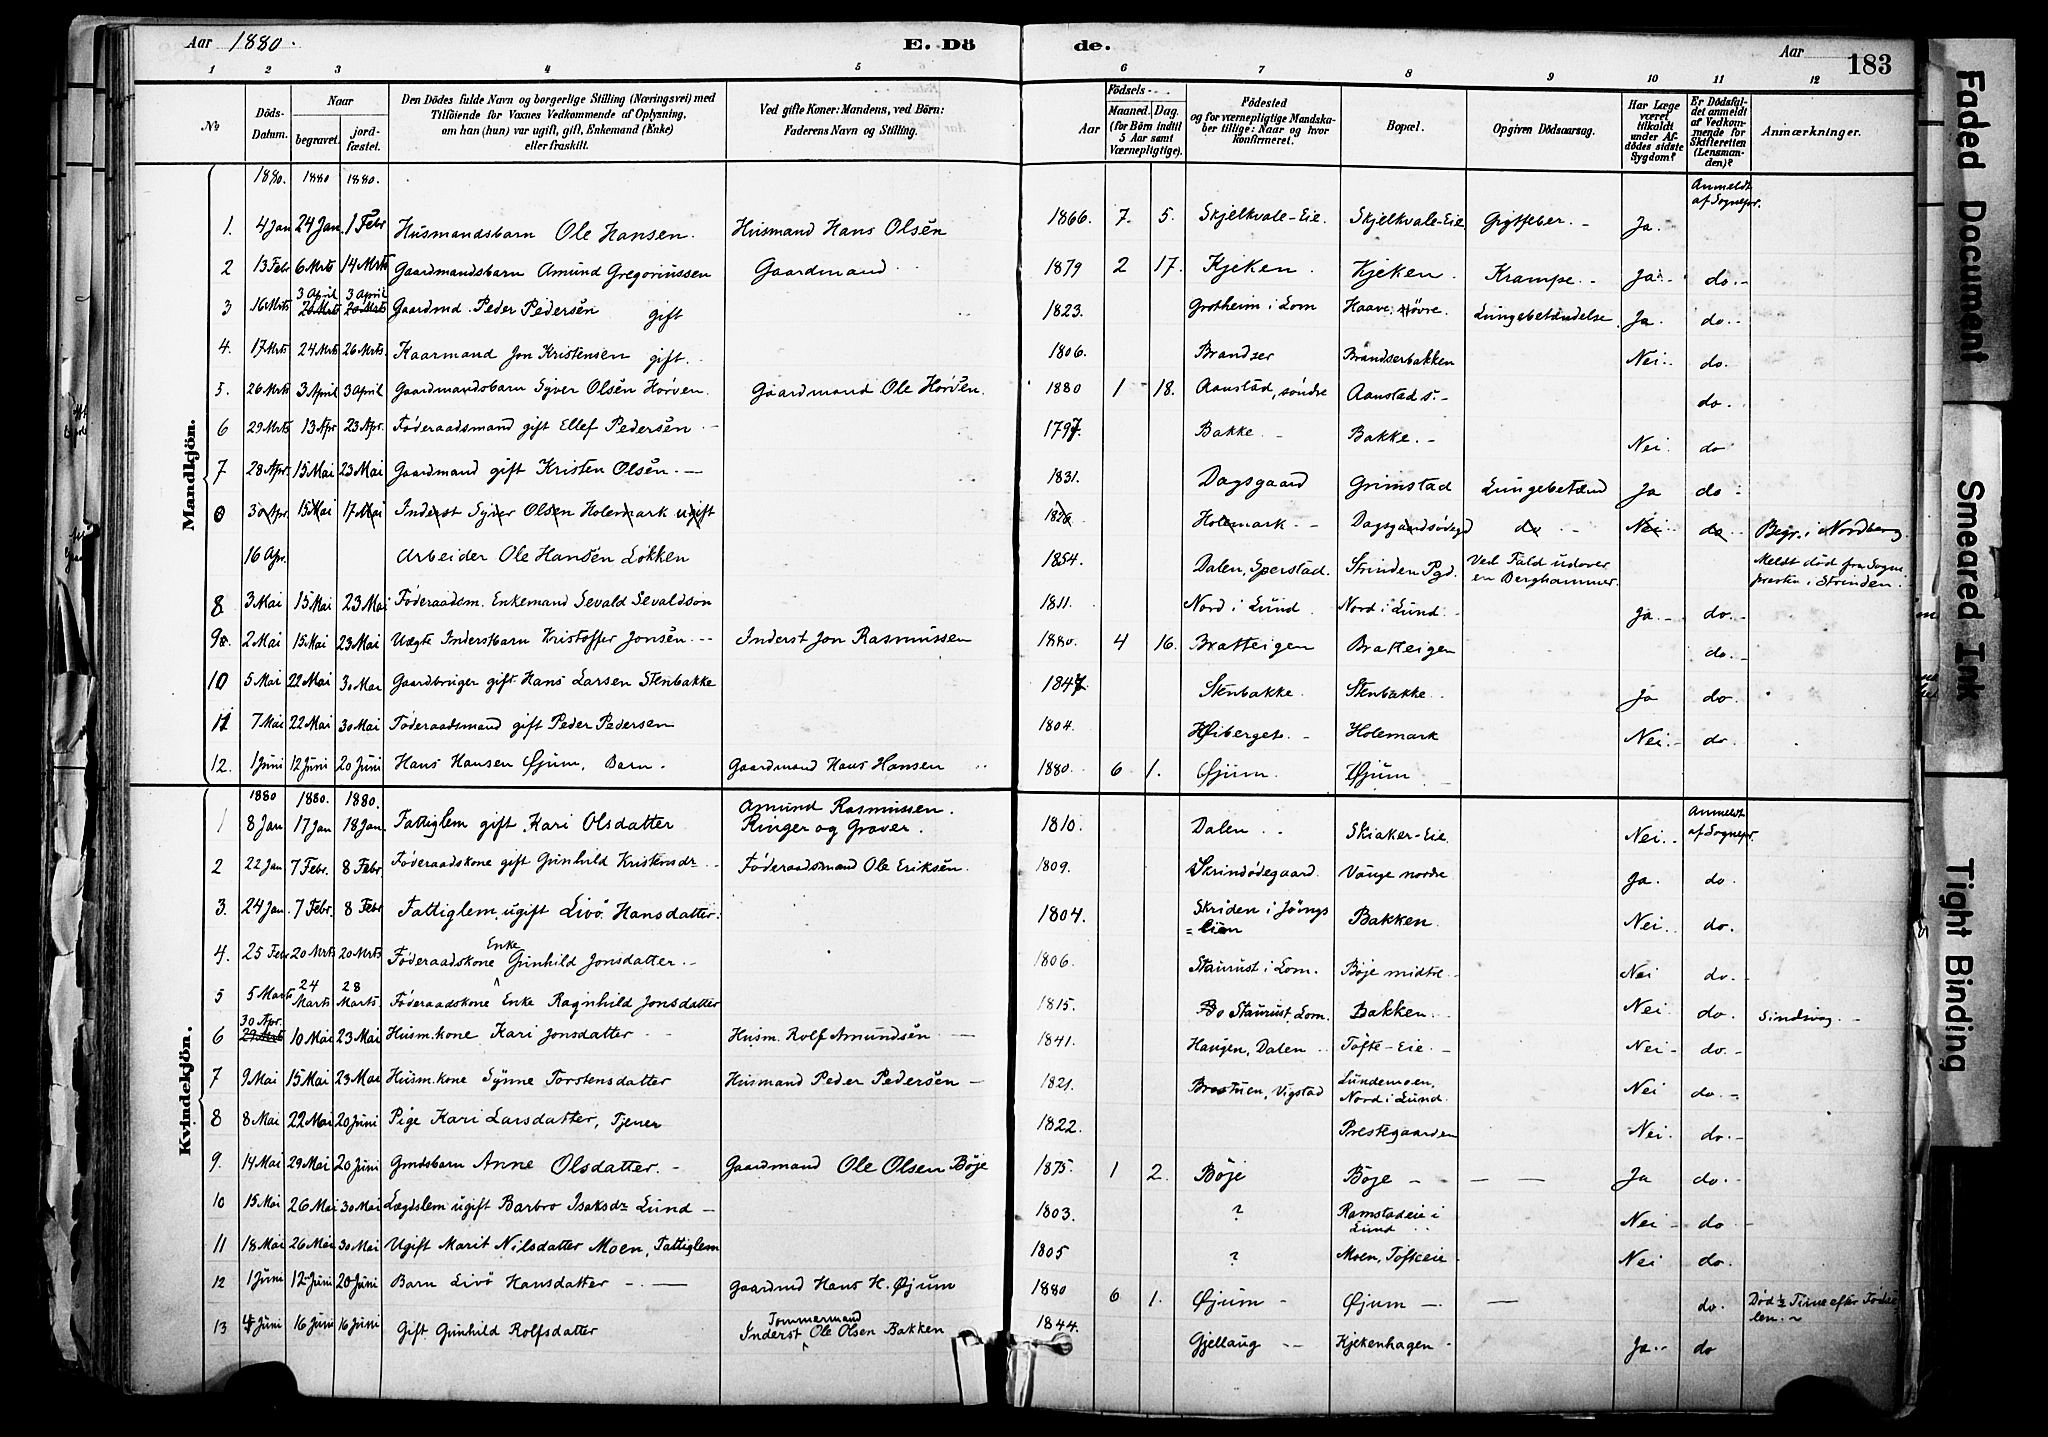 Aar 1880. E. Dö de. Aar 183
1 2 3 4 5 6 7 8 9 10 11 12
No Döds-Datum. Naar begravet. jord-fæstet. Den Dödes fulde Navn og borgerlige Stilling (Næringsvei) med Tilföiende for Voxnes Vedkommende af Oplysning, om han (hun) var ugift, gift, Enkemand (Enke) eller fraskilt. Ved gifte Koner: Mandens, ved Börn: Faderens Navn og Stilling. Födsels- Aar Maaned. Dag. (for Börn indtil 5 Aar samt Værnepligtige). Födested og for værnepligtige Mandska-ber tillige: Naar og hvor konfirmeret. Bopæl. Opgiven Dödsaarsag. Har Læge været tilkaldt under Af-dödes sidste Sygdom? Er Dödsfal-det anmeldt af Vedkom-mende for Skifteretten (Lensman-den)? Anmærkninger.
Mandkjön.
1880. 1880 1880. Anmeldt af Sognepr.
1. 4 Jan 24 Jan. 1 Febr Husmandsbarn Ole Hansen. Husmand Hans Olsen 1866. 7. 5. Skjelkvale-Eie. Skjelkvale-Eie Gigtfeber. - Ja.
2 13 Febr 6 Mrts 14 Mrts Gaardmandsbarn Amund Gregoriussen Gaardmand 1879 2 17. Kjeken. Kjeken. Krampe. - Ja. do. -
3 16 Mrts 3 April 20 Mrts 3 April 20 Mrts Gaardmd. Peder Pedersen gift 1823. Grotheim i Lom Haave, Növre. Lungebetændelse Ja. do. -
4. 17 Mrts 24 Mrts 26 Mrts. Kaarmand Jon Kristensen gift. 1806. Brandser Brandserbakken Nei. do.
5. 26 Mrts 3 April 3 April Gaardmandsbarn Syver Olsen Horven. Gaardmand Ole Horven. 1880 1 18. Aanstad, söndre Aanstad s. - do.
6 29 Mrts 13 Apr 23 Apr. Föderaadsmand gift Ellef Pedersen 1797. Bakke. - Bakke. - Nei. do
7 28 Apr. 15 Mai 23 Mai Gaardmand gift Kristen Olsen. - 1831. Dagsgaard Grimstad Lungebetænd Ja do -
30 Apr. 15 Mai 17 Mai Inderst Syver Olsen Holemark ugift 1826 Holemark. - Dagsgaardsödegd do - Nei do Begr. i Nordberg.
16 Apr. Arbeider Ole Hansen Lökken 1854. Dalen, Sperstad. Strinden Pgd. Ved Fald udover en Berghammer. Meldt död fra Sogne-presten i Strinden.
8. 3 Mai 15 Mai 23 Mai Föderaadsm. Enkemand Sevald Sevaldson 1811. Nord i Lund. Nord i Lund. - Ja. do. -
9. 2 Mai 15 Mai 23 Mai Uægte Inderstbarn Kristoffer Jonsen. - Inderst Jon Rasmussen 1880. 4 16. Bratteigen Bratteigen do. -
10 5 Mai 22 Mai 30 Mai Gaardbruger gift Hans Larsen Stenbakke 1847 Stenbakke. Stenbakke. Ja do.
11 7 Mai 22 Mai 30 Mai Föderaadsmand gift Peder Pedersen 1804. Høiberget. - Holemark Nei. - do.
12. 1 Juni 12 Juni 20 Juni Hans Hansen Øjum, Barn. Gaardmand Hans Hansen 1880. 6 1. Øjum. Øjum
Kvindekjön.
1880 1880. 1880. Anmeldt af Sognepr.
1 8 Jan 17 Jan 18 Jan. Fattiglem gift Kari Olsdatter Amund Rasmussen. Ringer og Graver. 1810. Dalen. Skiaker-Eie. Nei.
2 22 Jan 7 Febr. 8 Febr Föderaadskone gift Gunhild Kristensdr Föderaadsmand Ole Eriksen. 1809. Skrindödegaard. Vange nordre Ja. do.
3. 24 Jan. 7 Febr. 8 Febr Fattiglem, ugift Livö Hansdatter. 1804. Skriden i Jöings=lien Bakken. Nei. do.
4. 25 Febr 20 Mrts 20 Mrts Föderaadskone Enke Gunhild Jonsdatter. - 1806. Staurust i Lom. Böje midtre - Nei do. -
5 5 Marts 24 Marts 28 Marts. Föderaadskone Enke Ragnhild Jonsdatter 1815. Staurust, Lom. Bakken. Nei. do. Sindsvag. -
6 30 Apr. 29 Mrts 10 Mai 23 Mai Husm.kone Kari Jonsdatter Husm. Rolf Amundsen 1841. Haugen, Dalen Tofte-Eie. - Nei - do. -
7 9 Mai 15 Mai 23 Mai Husm.kone Synne Torstensdatter Husmand Peder Pedersen - 1821. Brostuen, Vigstad Lundemoen, Nord i Lund. Nei do. -
8 8 Mai 22 Mai 20 Juni Pige Kari Larsdatter, Tjener 1822. Prestegaarden Nei. do. -
9. 14 Mai 29 Mai 20 Juni Gmdsbarn Anne Olsdatter. - Gaardmand Ole Olsen Böje 1875. 1 2. Böje Böje - - - Ja do. -
10 15 Mai 26 Mai 30 Mai Lægdslem ugift Barbro Isaksdr Lund - 1803. ? Ramstadeie i Lund Nei - do -
11 18 Mai 26 Mai 30 Mai Ugift Marit Nilsdatter Moen, Fattiglem 1805 ? Moen, Tofteeie - Nei do.
12 1 Juni 12 Juni 20 Juni Barn Livö Hansdatter - - Gaardmd Hans H. Øjum 1880 6 1. Øjum - Øjum - - do. Död ½ Time efter Födse-len. -
13 4 Juni 16 Juni 16 Juni Gift Gunhild Rolfsdatter Inderst Tommermand Ole Olsen Bakken 1844. Gjellaug - Kjekenhagen - Ja. - do
Faded Document
Smeared Ink
Tight Binding